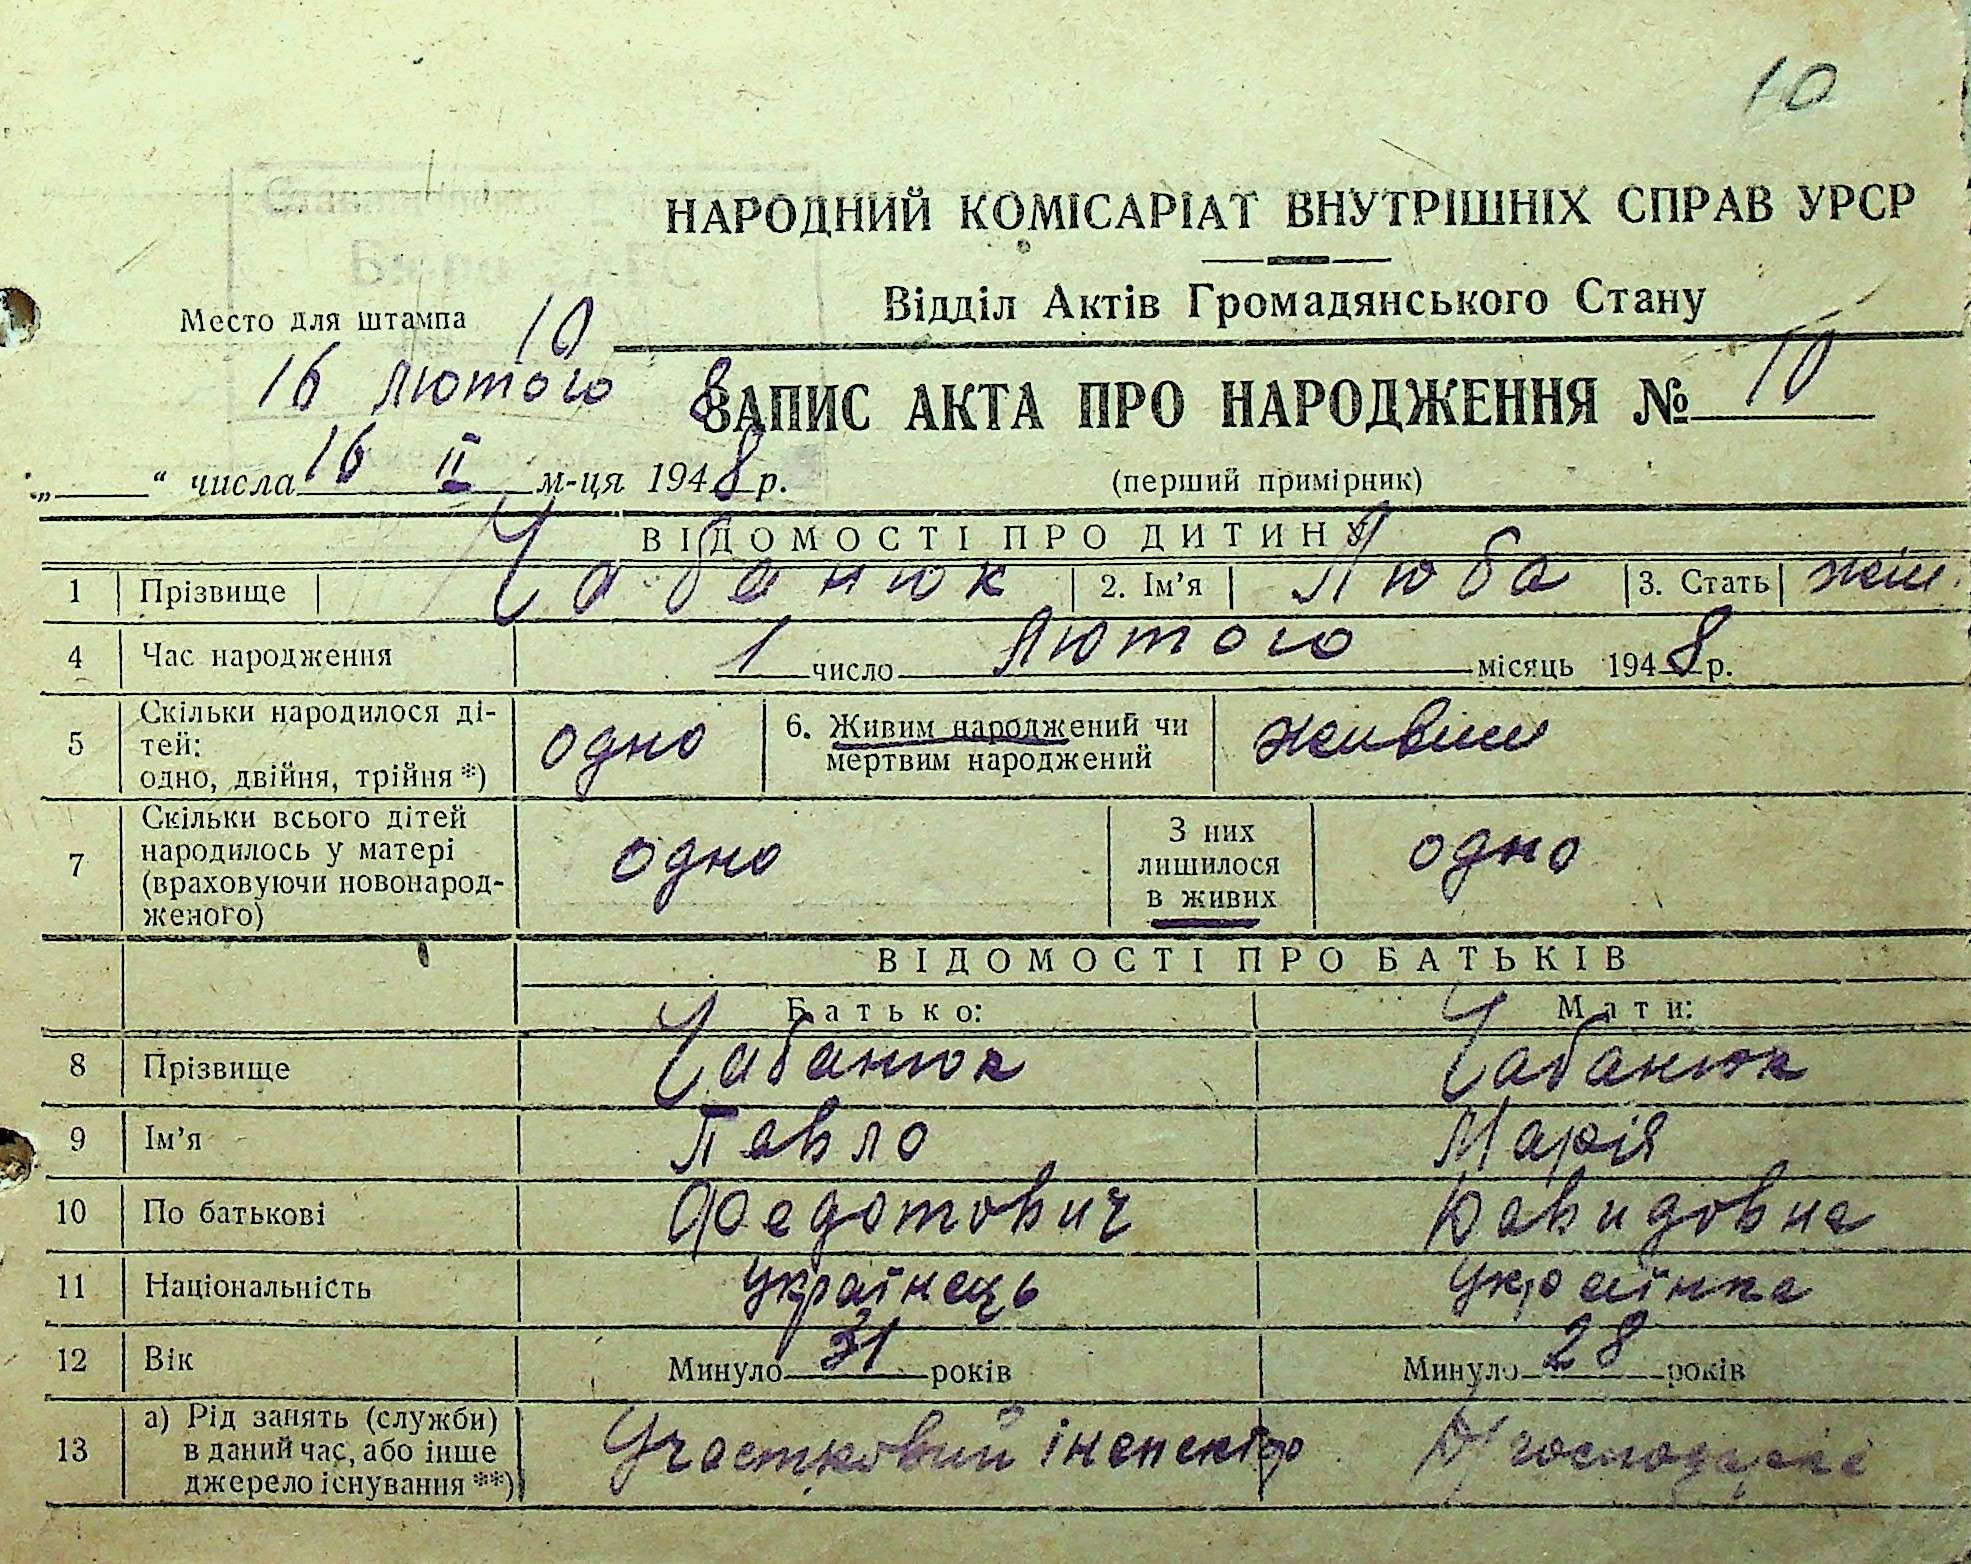 10
НАРОДНИЙ КОМІСАРІАТ ВНУТРІШНІХ СПРАВ УРСР
Відділ Актів Громадянського Стану
Бюро ЗАГС
Место для штампа
10
16 лютого 8
ЗАПИС АКТА ПРО НАРОДЖЕННЯ № 10
„ “ числа 16 II м-ця 1948 р.
(перший примірник)
ВІДОМОСТІ ПРО ДИТИНУ
1 Прізвище Чабанюк 2. Ім’я Люба 3. Стать жін.
4 Час народження 1 число Лютого місяць 1948 р.
5 Скільки народилося ді-
тей:
одно, двійня, трійня *)
одно
6. Живим народжений чи
мертвим народжений
живим
7 Скільки всього дітей
народилось у матері
(враховуючи новонарод-
женого)
одно
З них
лишилося
в живих
одно
ВІДОМОСТІ ПРО БАТЬКІВ
Батько: Мати:
8 Прізвище Чабанюк Чабанюк
9 Ім’я Павло Марія
10 По батькові Федотович Давидовна
11 Національність Українець Українка
12 Вік Минуло 31 років Минуло 28 років
13 а) Рід занять (служби)
в даний час, або інше
джерело існування **)
Участковий інспектор